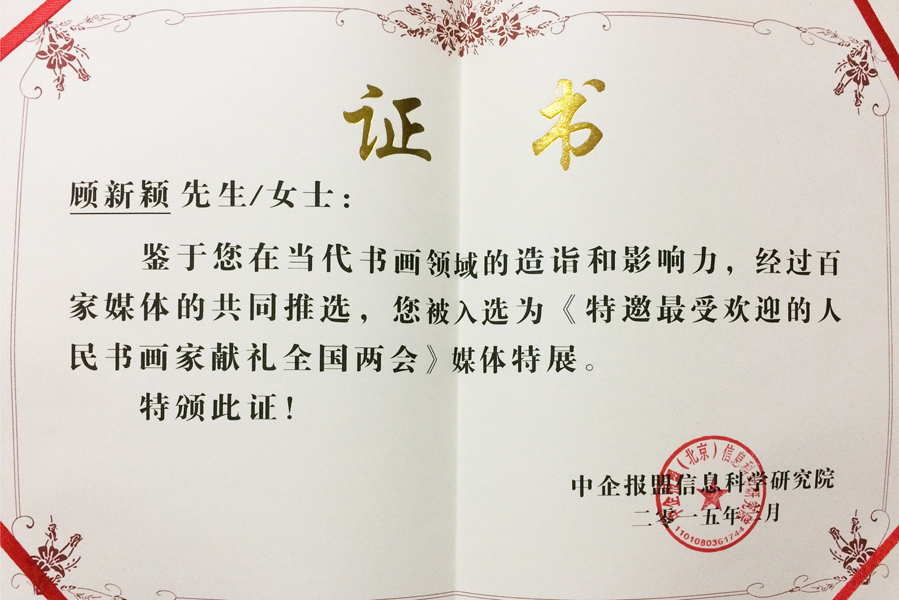 证书
顾新颖 先生/女士：
鉴于您在当代书画领域的造诣和影响力，经过百
家媒体的共同推选，您被入选为《特邀最受欢迎的人
民书画家献礼全国两会》媒体特展。
特颁此证！
中企报盟信息科学研究院
二零一五年三月
中企报盟（北京）信息科学研究院
1101080361744